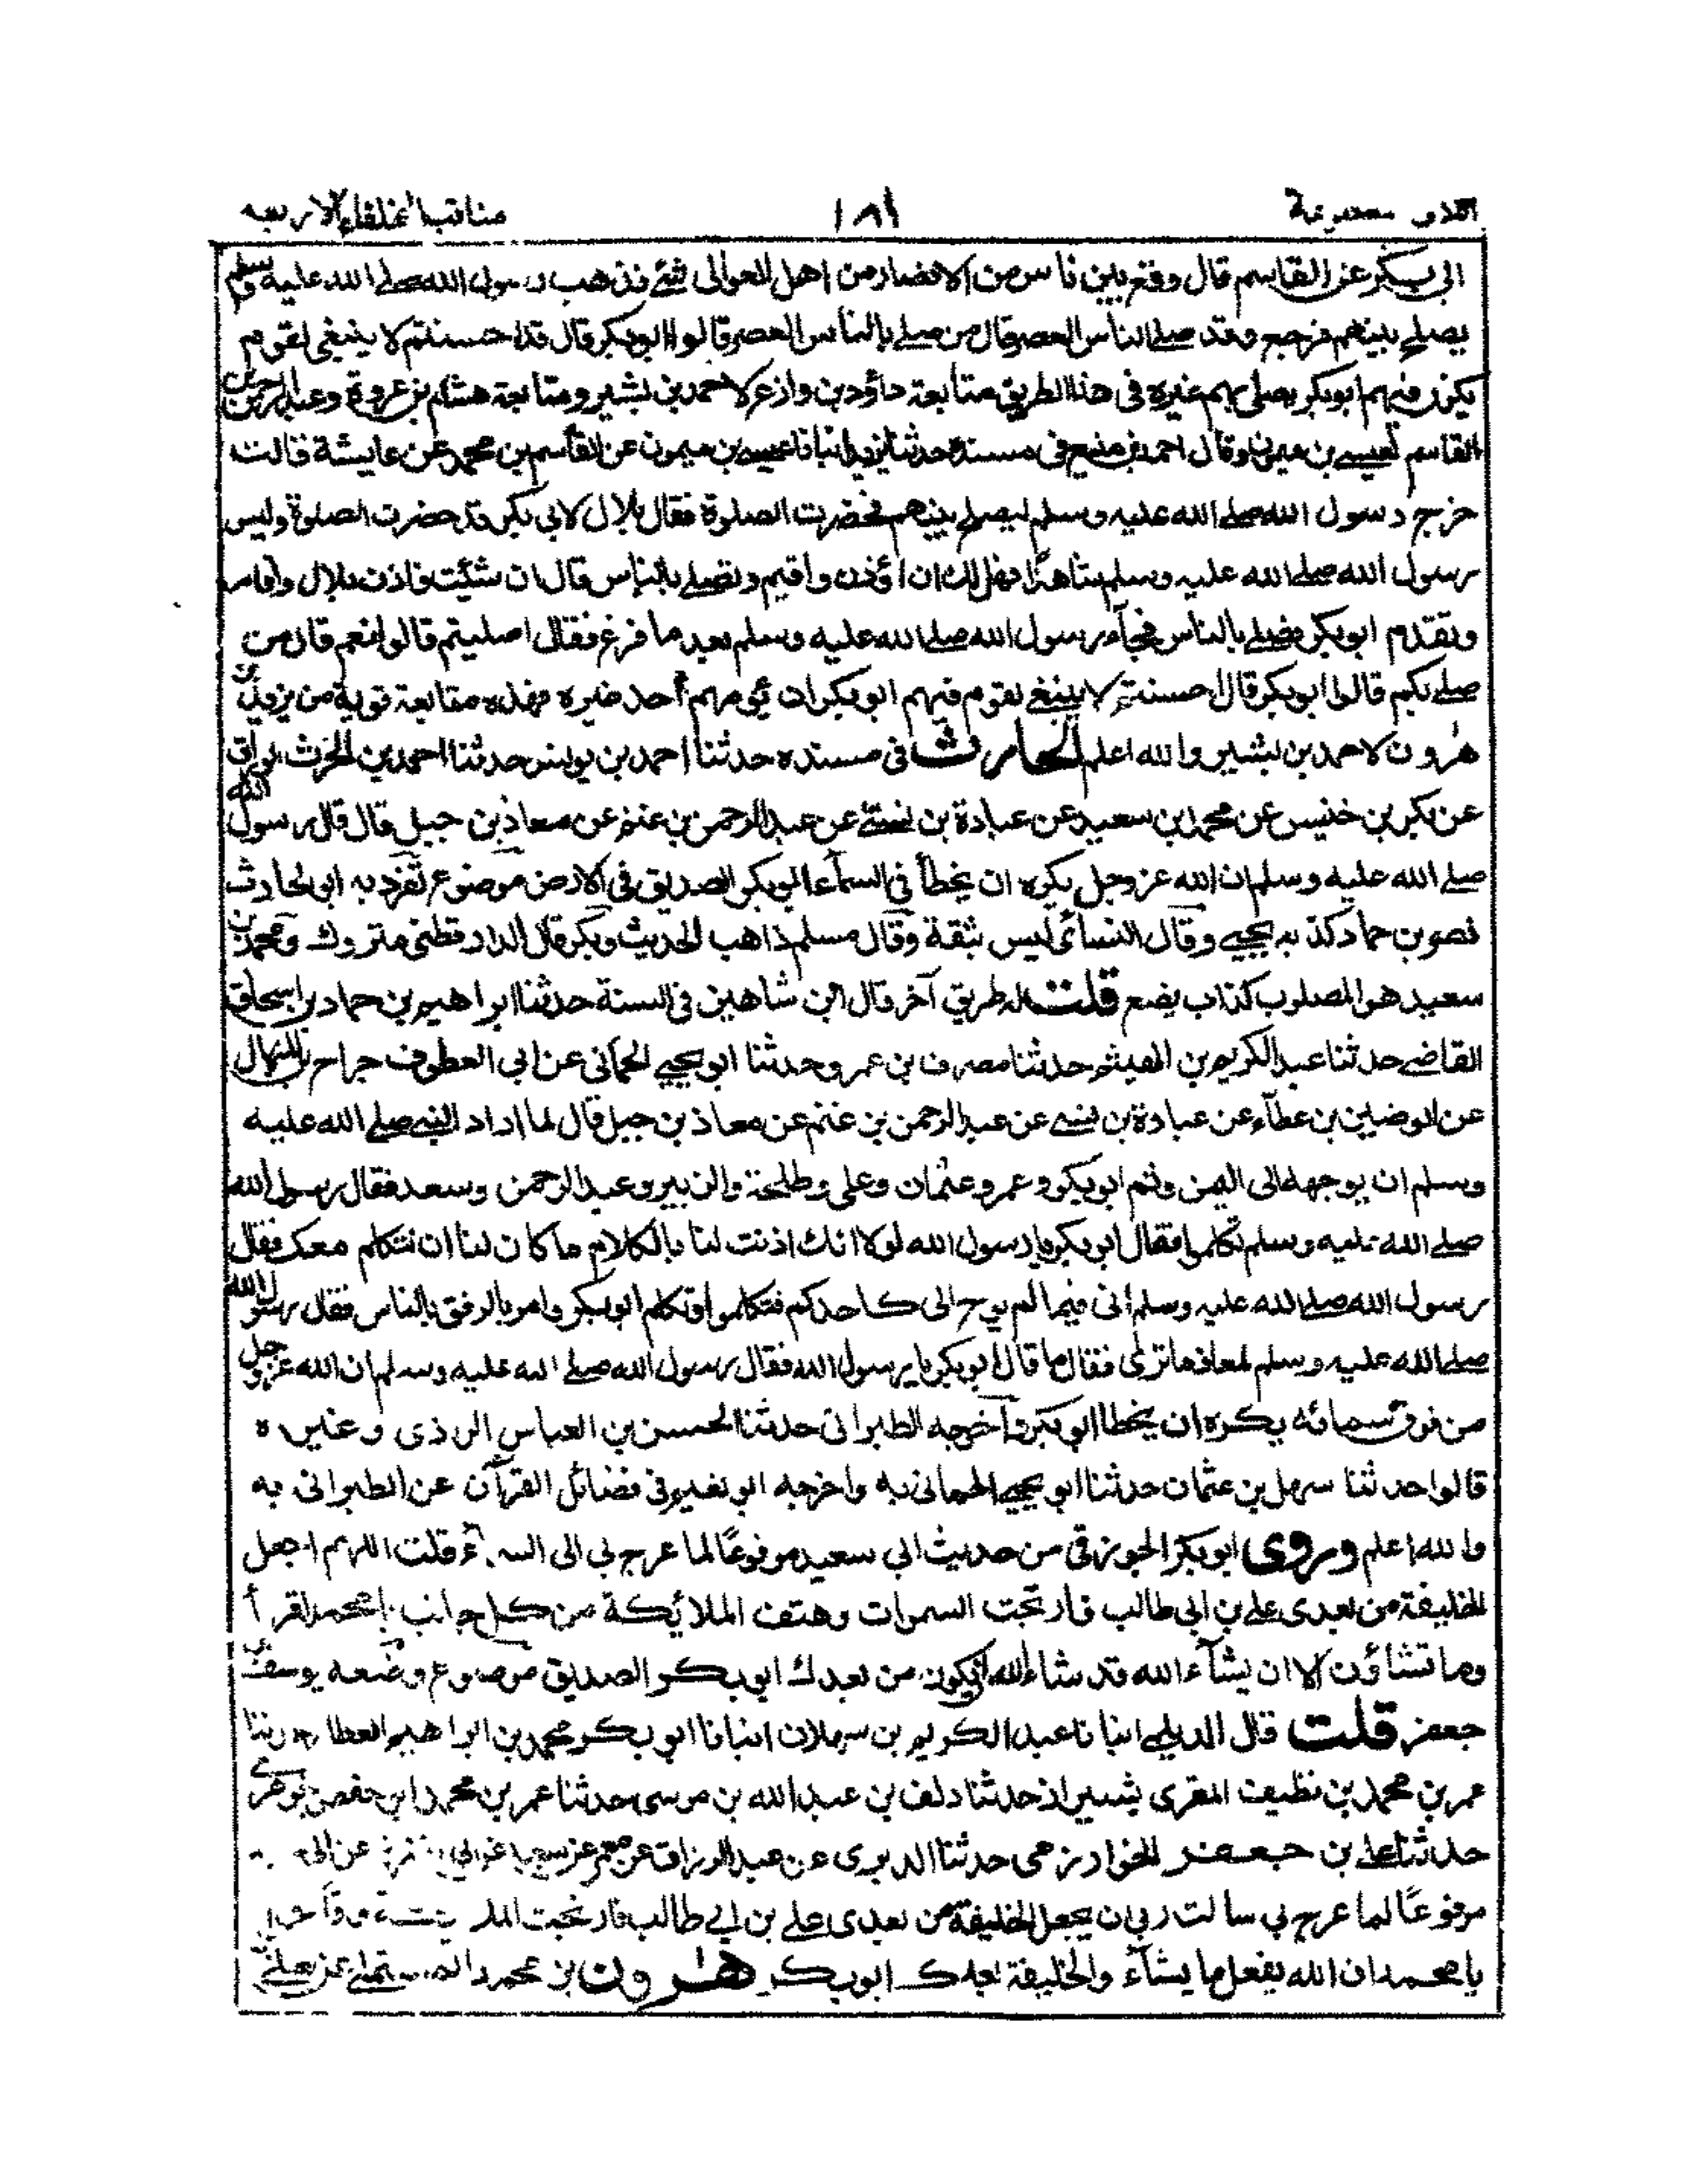 مناقب الخلفاء الاربعه
ابي بكر عن القاسم قال وقع بين ناس من الانصار من اهل العوالى شئ فذهب رسول الله صلے الله عليه وسلم
يصلح بينهم فرجع وقد صلے الناس العصر قال من صلے بالناس العصر قالوا ابو بكر قال قد احسنتم لا ينبغى لقوم
يكون فيهم ابو بكر يصلى بهم غيره فى هذا الطريق متابعة داؤد بن وازع لاحمد بن بشير ومتابعة هشام بن عروة وعبد الرحمن بن
القاسم لعيسے بن ميمون وقال احمد بن منيع فى مسنده حدثنا يزيد انبانا عيسے بن ميمون عن القاسم بن محمد عن عايشة قالت
خرج رسول الله صلے الله عليه وسلم ليصلح بينهم فحضرت الصلوة فقال بلال لابى بكر قد حضرت الصلوة وليس
رسول الله صلے الله عليه وسلم شاهدًا فهل لك ان اؤذن واقيم وتصلے بالناس قال ان شئت فاذن بلال واقام
وتقدم ابو بكر فصلے بالناس فجآء رسول الله صلے الله عليه وسلم بعد ما فرغ فقال اصليتم قالوا نعم قال من
صلے بكم قالوا ابو بكر قال احسنتم لا ينبغے لقوم فيهم ابو بكر ان يؤمهم احد غيره فهذه متابعة قوية من يزيد بن
هٰرون لاحمد بن بشير والله اعلم الحارث فى مسنده حدثنا احمد بن يونس حدثنا احمد بن الحرث الوراق
عن بكر بن خنيس عن محمد بن سعيد عن عبادة بن نسئے عن عبد الرحمن بن غنم عن معاذ بن جبل قال قال رسول الله
صلے الله عليه وسلم ان الله عز وجل يكره ان يخطأ فى السمآء ابو بكر الصديق فى الارض موضوع تفرد به ابو الحارث
نصر بن حماد كذبه يحيے وقال النسائى ليس بثقة وقال مسلم ذاهب الحديث وبكر قال الدارقطنى متروك ومحمد بن
سعيد هو المصلوب كذاب يضع قلت له طريق آخر قال ابن شاهين فى السنة حدثنا ابراهيم بن حماد بن اسحاق
القاضے حدثنا عبد الكريم بن الهيثم حدثنا مصرف بن عمرو حدثنا ابو يحيے الحمانى عن ابى العطوف جراح بن المنهال
عن الوضين بن عطآء عن عبادة بن نسے عن عبد الرحمن بن غنم عن معاذ بن جبل قال لما اراد النبے صلے الله عليه
وسلم ان يوجهه الى اليمن وثم ابو بكر وعمر وعثمان وعلى وطلحة والزبير وعبد الرحمن وسعد فقال رسول الله
صلے الله عليه وسلم تكلموا فقال ابو بكر يا رسول الله لولا انك اذنت لنا بالكلام ما كان لنا ان نتكلم معك فقال
رسول الله صلے الله عليه وسلم انى فيما لم يوح الى كاحدكم فتكلموا فتكلم ابو بكر وامر بالرفق بالناس فقال رسول الله
صلے الله عليه وسلم لمعاذ ما ترٰى فقال ما قال ابو بكر يا رسول الله فقال رسول الله صلے الله عليه وسلم ان الله عز وجل
من فوق سمائه يكره ان يخطا ابو بكر واخرجه الطبرانى حدثنا الحسن بن العباس الرازى وغيره
قالوا حدثنا سهل بن عثمان حدثنا ابو يحيے الحمانى به واخرجه ابو نعيم فى فضائل القرآن عن الطبرانى به
والله اعلم وروى ابو بكر الجوزقى من حديث ابى سعيد مرفوعًا لما عرج بى الى السمآء قلت اللهم اجعل
الخليفة من بعدى على بن ابى طالب فارتجت السموات وهتف الملائكة من كل جانب يا محمد اقرأ
وما تشاؤن الا ان يشآء الله قد شاء الله ان يكون من بعدك ابو بكر الصديق موضوع وضعه يوسف بن
جعفر قلت قال الديلمے انبانا عبد الكريم بن سهلان انبانا ابو بكر محمد بن ابراهيم العطار حدثنا
عمر بن محمد بن نظيف المقرى بشيراز حدثنا دلف بن عبد الله بن موسى حدثنا عمر بن محمد ابى حفص الجوهرى
حدثنا على بن جعفر الخوارزمى حدثنا الدبرى عن عبد الرزاق عن معمر عن سعيد عن ابى
مرفوعًا لما عرج بى سالت ربى ان يجعل الخليفة من بعدى على بن ابى طالب فارتجت
يا محمد ان الله يفعل ما يشآء والخليفة بعدك ابو بكر هٰرون بن محمد المستملے عن يعلے بن